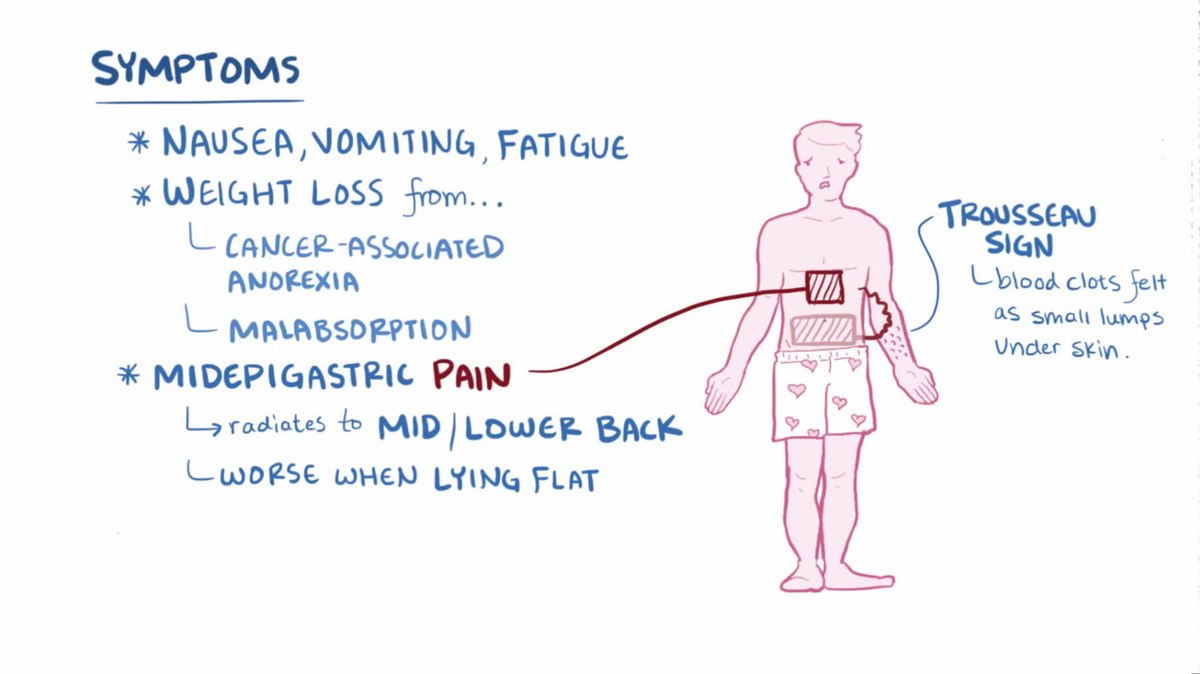 SYMPTOMS
* NAUSEA, VOMITING, FATIGUE
* WEIGHT LOSS from...
CANCER-ASSOCIATED
ANOREXIA
MALABSORPTION
* MIDEPIGASTRIC PAIN
radiates to MID/LOWER BACK
WORSE WHEN LYING FLAT
TROUSSEAU
SIGN
blood clots felt
as small lumps
under skin.